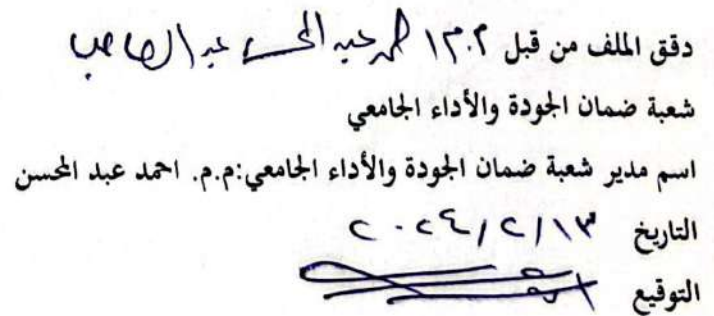 دقق الملف من قبل م.م احمد عبد المحسن عبد الصاحب
شعبة ضمان الجودة والأداء الجامعي
اسم مدير شعبة ضمان الجودة والأداء الجامعي:م.م. احمد عبد المحسن
التاريخ ٢٠٢٤/٢/١٣
التوقيع